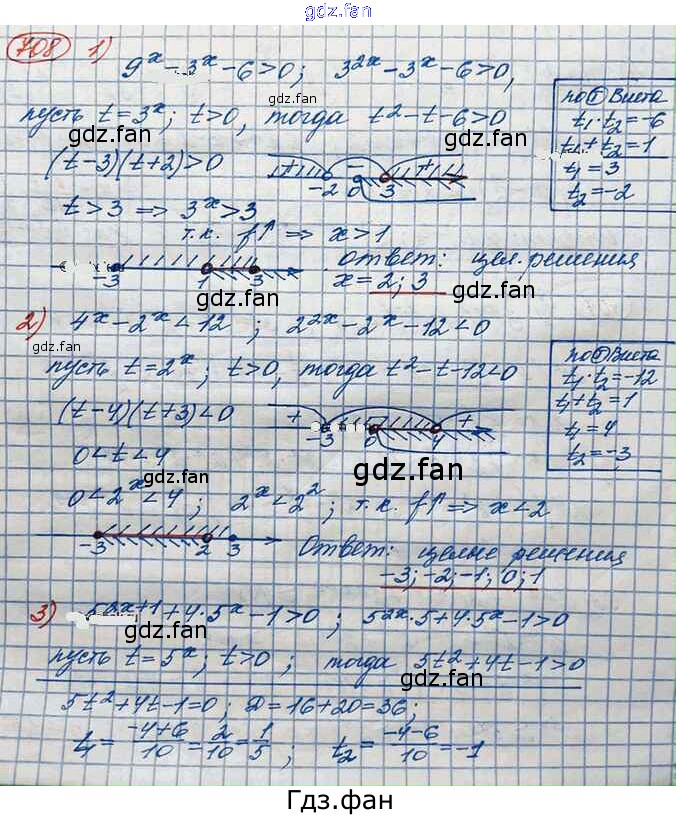 gdz.fan
708 1) 9ˣ-3ˣ-6>0; 3²ˣ-3ˣ-6>0,
gdz.fan
пусть t=3ˣ; t>0, тогда t²-t-6>0
gdz.fan gdz.fan
по т Виета
t₁·t₂=-6
t₁+t₂=1
t₁=3
t₂=-2
(t-3)(t+2)>0
+ - +
-2 0 3
t>3 => 3ˣ>3
gdz.fan
т.к. f↑ => x>1
-3 1 3
Ответ: цел. решения
x=2; 3
gdz.fan gdz.fan
2) 4ˣ-2ˣ<12; 2²ˣ-2ˣ-12<0
gdz.fan
пусть t=2ˣ; t>0, тогда t²-t-12<0
gdz.fan gdz.fan
по т Виета
t₁·t₂=-12
t₁+t₂=1
t₁=4
t₂=-3
(t-4)(t+3)<0
+ +
-3 0 4
0<t<4
gdz.fan gdz.fan
0<2ˣ<4; 2ˣ<2²; т.к. f↑ => x<2
-3 2 3
Ответ: целые решения
-3; -2; -1; 0; 1
gdz.fan
3) 5²ˣ⁺¹+4·5ˣ-1>0; 5²ˣ·5+4·5ˣ-1>0
gdz.fan gdz.fan
пусть t=5ˣ; t>0; тогда 5t²+4t-1>0
gdz.fan
5t²+4t-1=0; D=16+20=36;
t₁=(-4+6)/10=2/10=1/5; t₂=(-4-6)/10=-1
gdz.fan gdz.fan
Гдз.фан